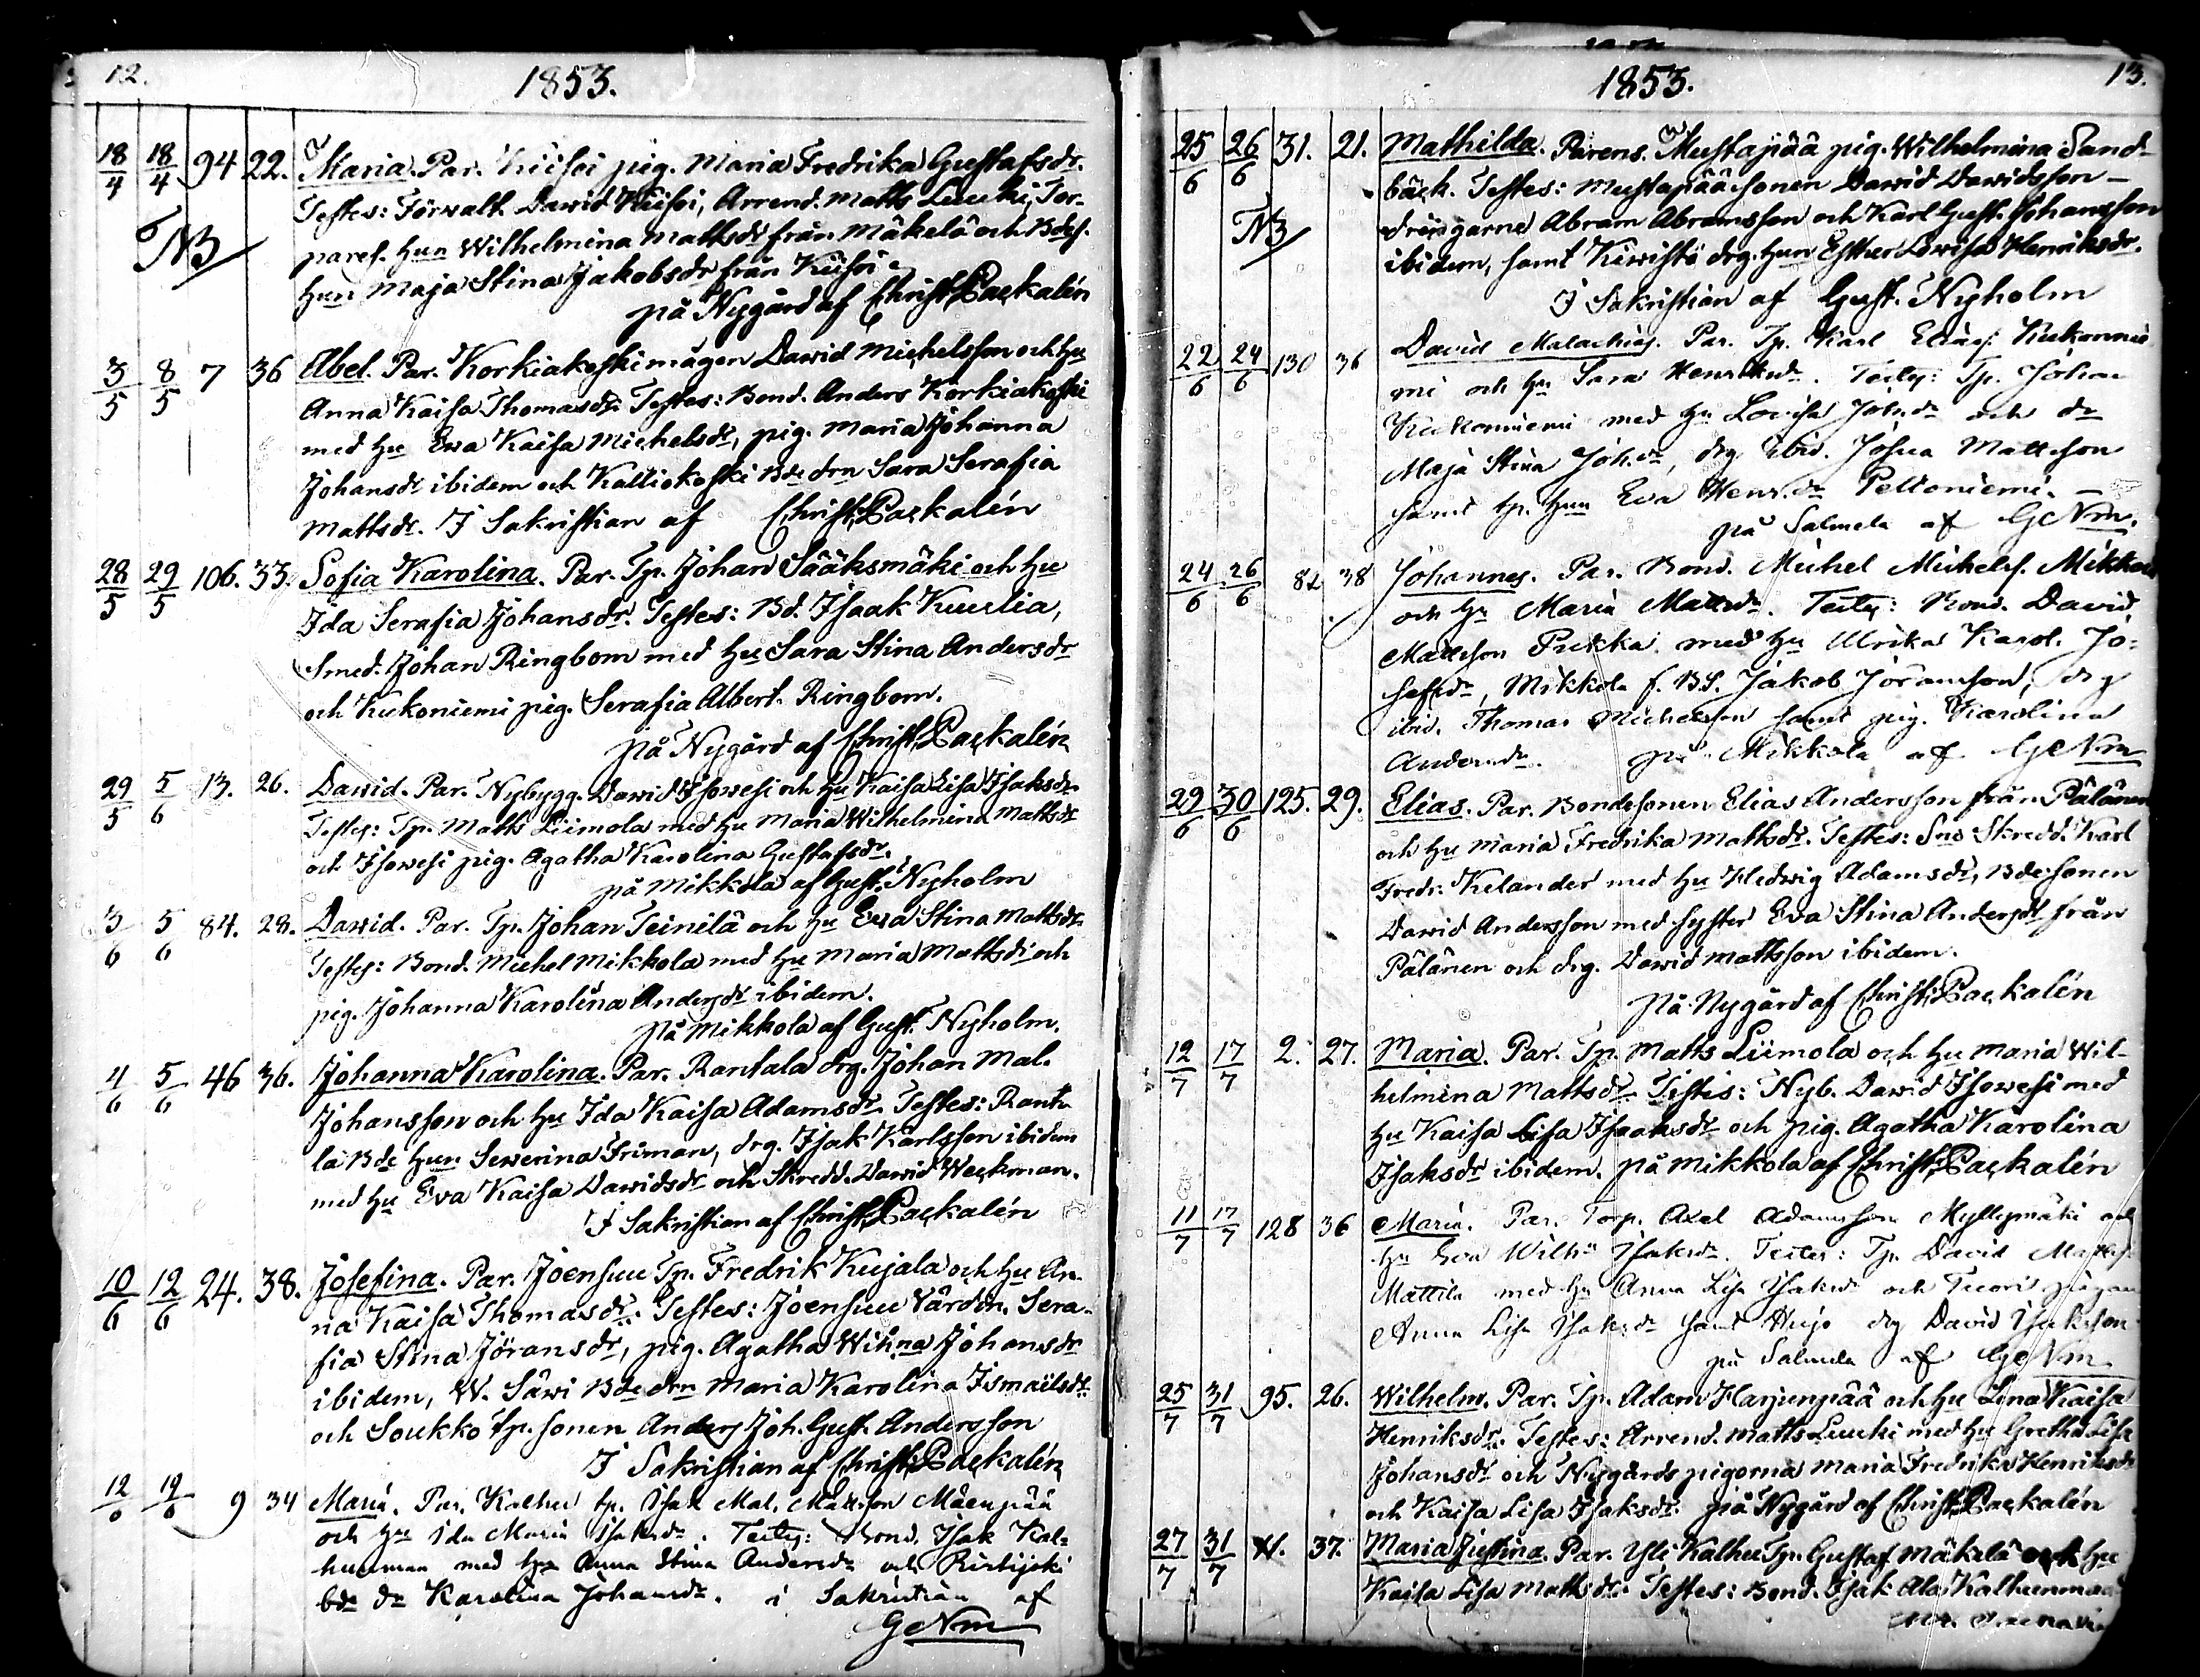 12.
1853.
18/4 18/4 94 22. Maria. Par. Kuisoi pig. Maria Fredrika Gustafsdr.
Testes: Förvalt. David Kuisoi, Arrend. Matts Luuki, Tor-
NB
paref. Hun Wilhelmina Mattsdr från Mäkelä och Bdef.
hun Maja Stina Jakobsdr från Kuisoi.
på Nygård af Christ. Packalén
3/5 8/5 7 36 Abel. Par. Korkiakoski mågen David Michelsson och Hu
Anna Kaisa Thomasdr. Testes: Bond. Anders Korkiakoski
med Hu Ewa Kaisa Michelsdr, pig. Maria Johanna
Johansdr ibidem och Kalliokoski Bde drn Sara Serafia
Mattsdr. I Sakristian af Christ. Packalén
28/5 29/5 106. 33. Sofia Karolina. Par. Tp. Johan Sääksmäki och Hu
Ida Serafia Johansdr. Testes: Bd. Isaak Kuulia,
Smed. Johan Ringbom med Hu Sara Stina Andersdr
och Kukoniemi pig. Serafia Albert. Ringbom.
på Nygård af Christ. Packalén
29/5 5/6 13. 26. David. Par. Nybygg. David Isowesi och Hu Kaisa Lisa Isaksdr.
Testes: Tp. Matts Liimola med Hu Maria Wilhelmina Mattsdr
och Isowesi pig. Agatha Karolina Gustafsdr.
på Mikkola af Gust. Nyholm
3/6 5/6 84. 28. David. Par. Tp. Johan Teinilä och Hu Ewa Stina Mattsdr.
Testes: Bond. Michel Mikkola med Hu Maria Mattsdr och
pig. Johanna Karolina Andersdr ibidem.
på Mikkola af Gust. Nyholm.
4/6 5/6 46 36. Johanna Karolina. Par. Rantala drg. Johan Mal.
Johansson och Hu Ida Kaisa Adamsdr. Testes: Ranta
la Bde hun Sewerina Friman, drg. Isak Karlsson ibidem
med Hu Eva Kaisa Davidsdr och Skredd. David Weckman.
I Sakristian af Christ. Packalén
10/6 12/6 24. 38. Josefina. Par. Joensuu Tp. Fredrik Kujala och Hu An-
na Kaisa Thomasdr. Testes: Joensuu Värdin. Sera-
fia Stina Jöransdr, pig. Agatha Wihna Johansdr
ibidem, W. Säwi Bde drn Maria Karolina Ismailsdr.
och Soukko tp. sonen Anders Joh. Gust. Andersson
I Sakristian af Christ. Packalén
12/6 19/6 9 34 Maria. Par. Kalhu tp. Isak Mal. Mattsson Mäenpää
och Hu Ida Maria Isaksdr. Testes: Bond. Isak Kal-
hunmaa med Hu Anna Stina Andersdr och Ristijoki
bde dr Karolina Johansdr. i Sakristian af
GeNm
13.
1853.
25/6 26/6 31. 21. Mathilda. Parens. Mustapää pig. Wilhelmina Sand-
bäck. Testes: Mustapääsonen David Davidsson –
NB
drängarne Abram Abramsson och Karl Gust. Johansson
ibidem, samt Kiwistö drg. hun Esther Lovisa Henriksdr.
I Sakristian af Gust. Nyholm
22/6 24/6 130 36 David Malachias. Par. Tp. Karl Eliass. Kukonnie
mi och Hu Sara Henriksdr. Testes: Tp. Johan
Kukonniemi med Hu Lovisa Johsdr och dr
Maja Stina Johsdr, drg ibid. Josua Mattsson
samt tp. hun Eva Henrsdr Peltoniemi. –
på Salmela af GeNm.
24/6 26/6 82 38 Johannes. Par. Bond. Michel Michelss. Mikkola
och Hu Maria Mattsdr. Testes: Bond. David
Mattsson Pukka med Hu Ulrika Karol. Jo-
sefsdr, Mikkola f. B.S. Jakob Jöransson, drg
ibid. Thomas Michelsson samt pig. Karolina
Andersdr. på Mikkola af GeNm
29/6 30/6 125. 29. Elias. Par. Bondesonen Elias Andersson från Pälänen
och Hu Maria Fredrika Mattsdr. Testes: Sno Skredd. Karl
Fredr. Kelander med Hu Hedwig Adamsdr, Bdesonen
David Andersson med syster Eva Stina Andersdr från
Pälänen och drg. David Mattsson ibidem.
på Nygård af Christ. Packalén
12/7 17/7 2. 27. Maria. Par. Tp. Matts Liimola och Hu Maria Wil-
helmina Mattsdr. Testes: Nyb. David Isowesi med
Hu Kaisa Lisa Isaaksdr och pig. Agatha Karolina
Isaksdr ibidem. på Mikkola af Christ. Packalén
11/7 17/7 128 36 Maria. Par. Torp. Axel Adamsson Myllymäki och
Hu Eva Wilhna Isaksdr. Testes: Tp. David Mattss.
Mattila med Hu Anna Lisa Isaksdr och pigan
Anna Lisa Isaksdr samt Heijo drg David Isaksson
på Salmela af GeNm
25/7 31/7 95. 26. Wilhelm. Par. Tp. Adam Harjunpää och Hu Lena Kaisa
Henriksdr. Testes: Arrend. Matts Luuki med Hu Gretha Lisa
Johansdr och Nygårds pigorna Maria Fredrika Henriksdr
och Kaisa Lisa Isaksdr. på Nygård af Christ. Packalén
27/7 31/7 37. Maria Justina. Par. Yli Kalhu Tp. Gustaf Mäkelä och Hu
Kaisa Lisa Mattsdr. Testes: Bond. Isak Ala Kalhunmaa